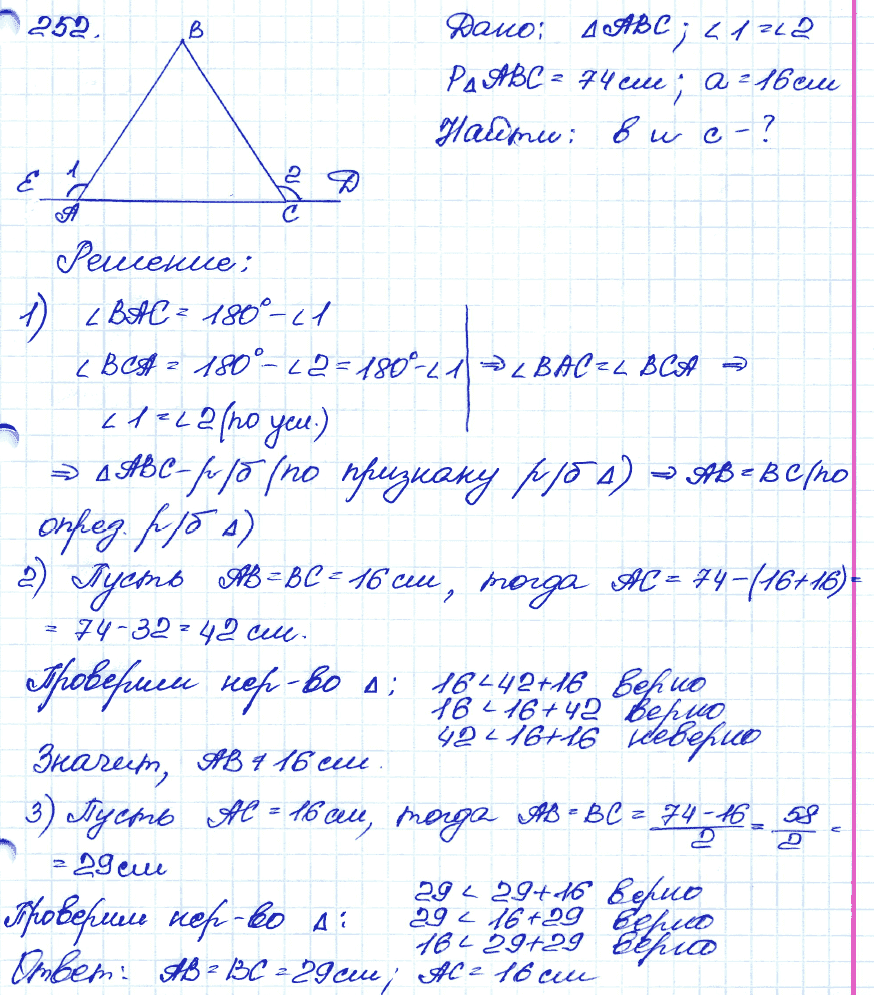 252.
B
1
2
E
A
C
Д
Дано: △ABC; ∠1=∠2
P△ABC = 74 см; a = 16 см
Найти: в и с - ?
Решение:
1) ∠BAC = 180° - ∠1
∠BCA = 180° - ∠2 = 180° - ∠1 ⇒ ∠BAC = ∠BCA ⇒
∠1 = ∠2 (по усл.)
⇒ △ABC - р/б (по признаку р/б △) ⇒ AB = BC (по
опред. р/б △)
2) Пусть AB = BC = 16 см, тогда AC = 74 - (16+16) =
= 74 - 32 = 42 см.
Проверим нер-во △: 16 < 42 + 16 верно
16 < 16 + 42 верно
42 < 16 + 16 неверно
Значит, AB ≠ 16 см.
3) Пусть AC = 16 см, тогда AB = BC = (74 - 16)/2 = 58/2 =
= 29 см
Проверим нер-во △: 29 < 29 + 16 верно
29 < 16 + 29 верно
16 < 29 + 29 верно
Ответ: AB = BC = 29 см; AC = 16 см